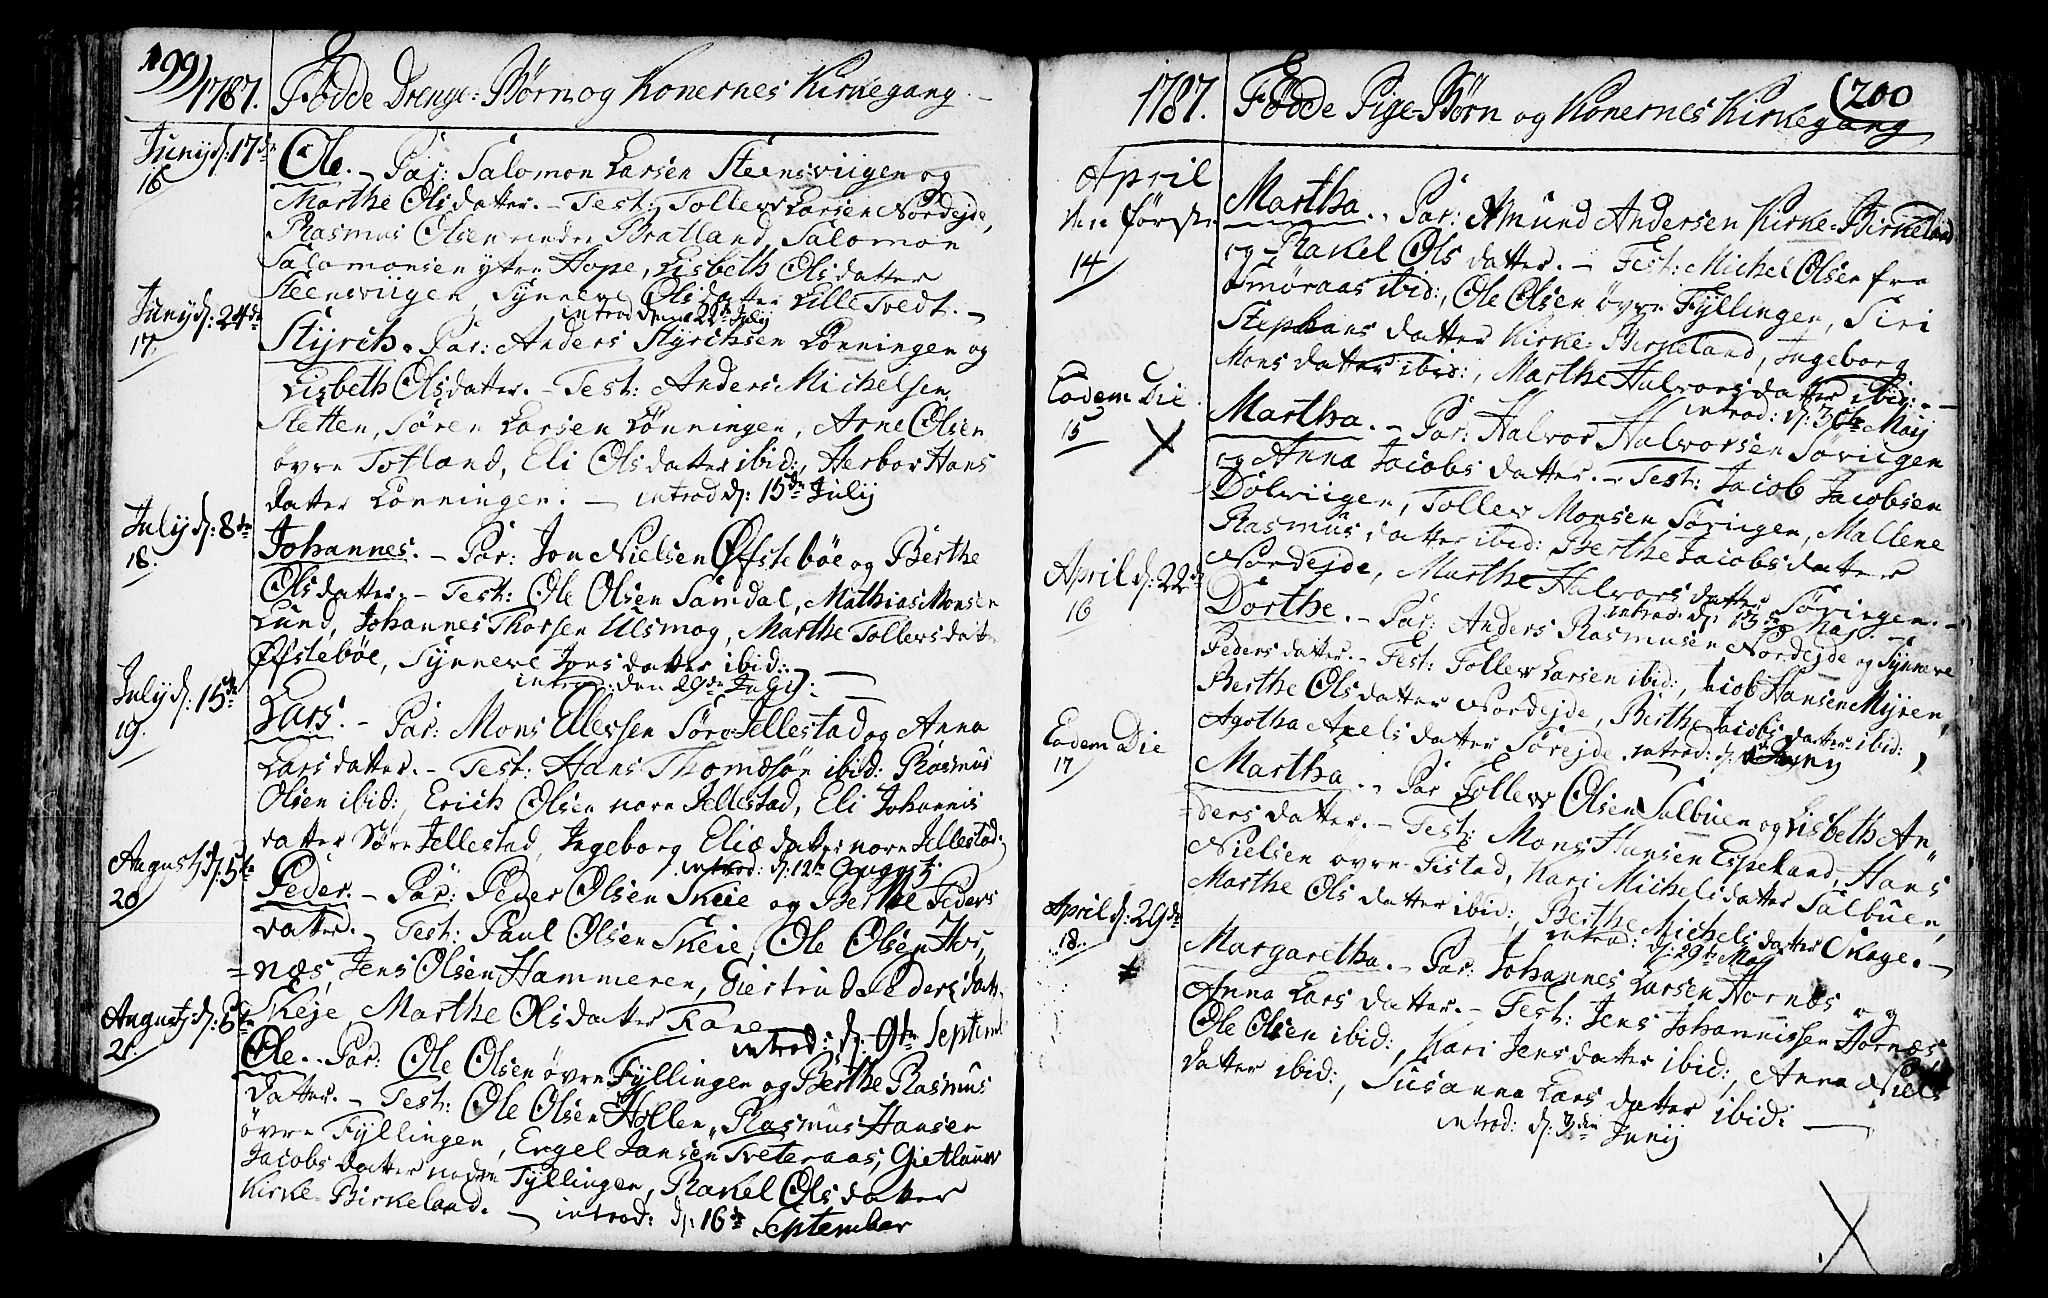 199)
1787. Fødde Drenge-Børn og Konernes Kirkegang.
Junij d: 17de
16
Ole. - Par: Salomon Larsen Steensviigen og
Marthe Olsdatter. - Test: Tollev Larsen Nordejde,
Rasmus Olsen nedre Bratland, Salomon
Salomonsen ytre Hope, Lisbeth Olsdatter
Steensviigen, Synneve Olsdatter Lille Tvedt. -
introd den 22de July
Junij d: 24de
17.
Styrich. Par: Anders Styrichsen Lønningen og
Lisbeth Olsdatter. - Test: Anders Michelsen
Stetten, Søren Larsen Lønningen, Arne Olsen
øvre Totland, Eli Olsdatter ibid:, Herbor Hans
datter Lønningen. - introd d: 15de Julij
Julij d: 8de
18.
Johannes. - Par: Jon Nielsen Øfstebøe og Berthe
Olsdatter. - Test: Ole Olsen Samdal, Mathias Monsen
Lund, Johannes Thorsen Ulsmog, Marthe Tollevsdat
Øfstebøe, Synneve Jonsdatter ibid: -
introd: den 29de Julij: -
Julij d: 15de
19.
Lars. - Par: Mons Ellessen Søre Jellestad og Anna
Larsdatter. - Test: Hans Thomæsøn ibid: Rasmus
Olsen ibid:, Erich Olsen norn Jellestad, Eli Johannis
datter Søre Jellestad, Ingeborg Eliæ datter norn Jellestad:
introd: d: 12te Augustj
Augustj d: 5te
20
Peder. - Par: Peder Olsen Skeie og Berthe Peders
datter. - Test: Paul Olsen Skeie, Ole Olsen Hor,
=næs, Jens Olsen Hammeren, Giertrud Peders datt.
Skeje, Marthe Olsdatter Fane
introd: d: 9de Septemb
Augustj d: 5te
21.
Ole. - Par: Ole Olsen øvre Fyllingen og Berthe Rasmus
datter. - Test: Ole Olsen Hollen, Rasmus Hansen
øvre Fyllingen, Engel Jansen Tveteraas, Gietlaus
Jacobs datter nedre Fyllingen, Rakel Olsdatter
Kirke-Birkeland. - introd: d: 16de September
(200
1787. Fødde Pige-Børn og Konernes Kirkegang
April
den første
14
Martha. - Par: Amund Andersen Kirke-Birkeland
og Rakel Ols datter. - Test: Michel Olsen fra
Smøraas ibid:, Ole Olsen øvre Fyllingen, Siri
Stephans datter Kirke-Birkeland, Ingeborg
Mons datter ibid:, Marthe Halvors datter ibid: -
introd: d: Maij
Eodem Die
15
Martha. - Par: Halvor Halvorsen Søviigen
og Anna Jacobs datter. - Test: Jacob Jacobsen
Dolviigen, Tollev Monsen Søviigen, Mallene
Rasmus datter ibid: Berthe Jacobsdatter
Nordejde, Marthe Halvorsdatter Søviigen. -
introd: d: 13de Maj. -
April d: 22de
16
Dorthe. - Par: Anders Rasmusen Nordejde og Synneve
Peders datter. - Test: Tollev Larsen ibid:, Jacob Hansen Myren,
Berthe Olsdatter Nordejde, Berthe Jacobs datter ibid:
Agotha Axels datter Sørejde introd: d: Junij
Eodem Die
17
Martha. - Par Tollev Olsen Salbuen og Lisbeth An
=ders datter. - Test: Mons Hansen Espeland, Hans
Nielsen øvre Tistad, Kari Michels datter Salbuen,
Marthe Ols datter ibid:, Berthe Michels datter Skage. -
introd: d: 29de Maj
April d: 29de
18.
Margaretha. - Par: Johannes Larsen Hornæs og
Anna Lars datter. - Test: Jens Johannissen Hornæs
Ole Olsen ibid:, Kari Jens datter ibid:, Anna Niels
datter ibid:, Susanna Lars datter ibid: -
introd: d: 3die Junij